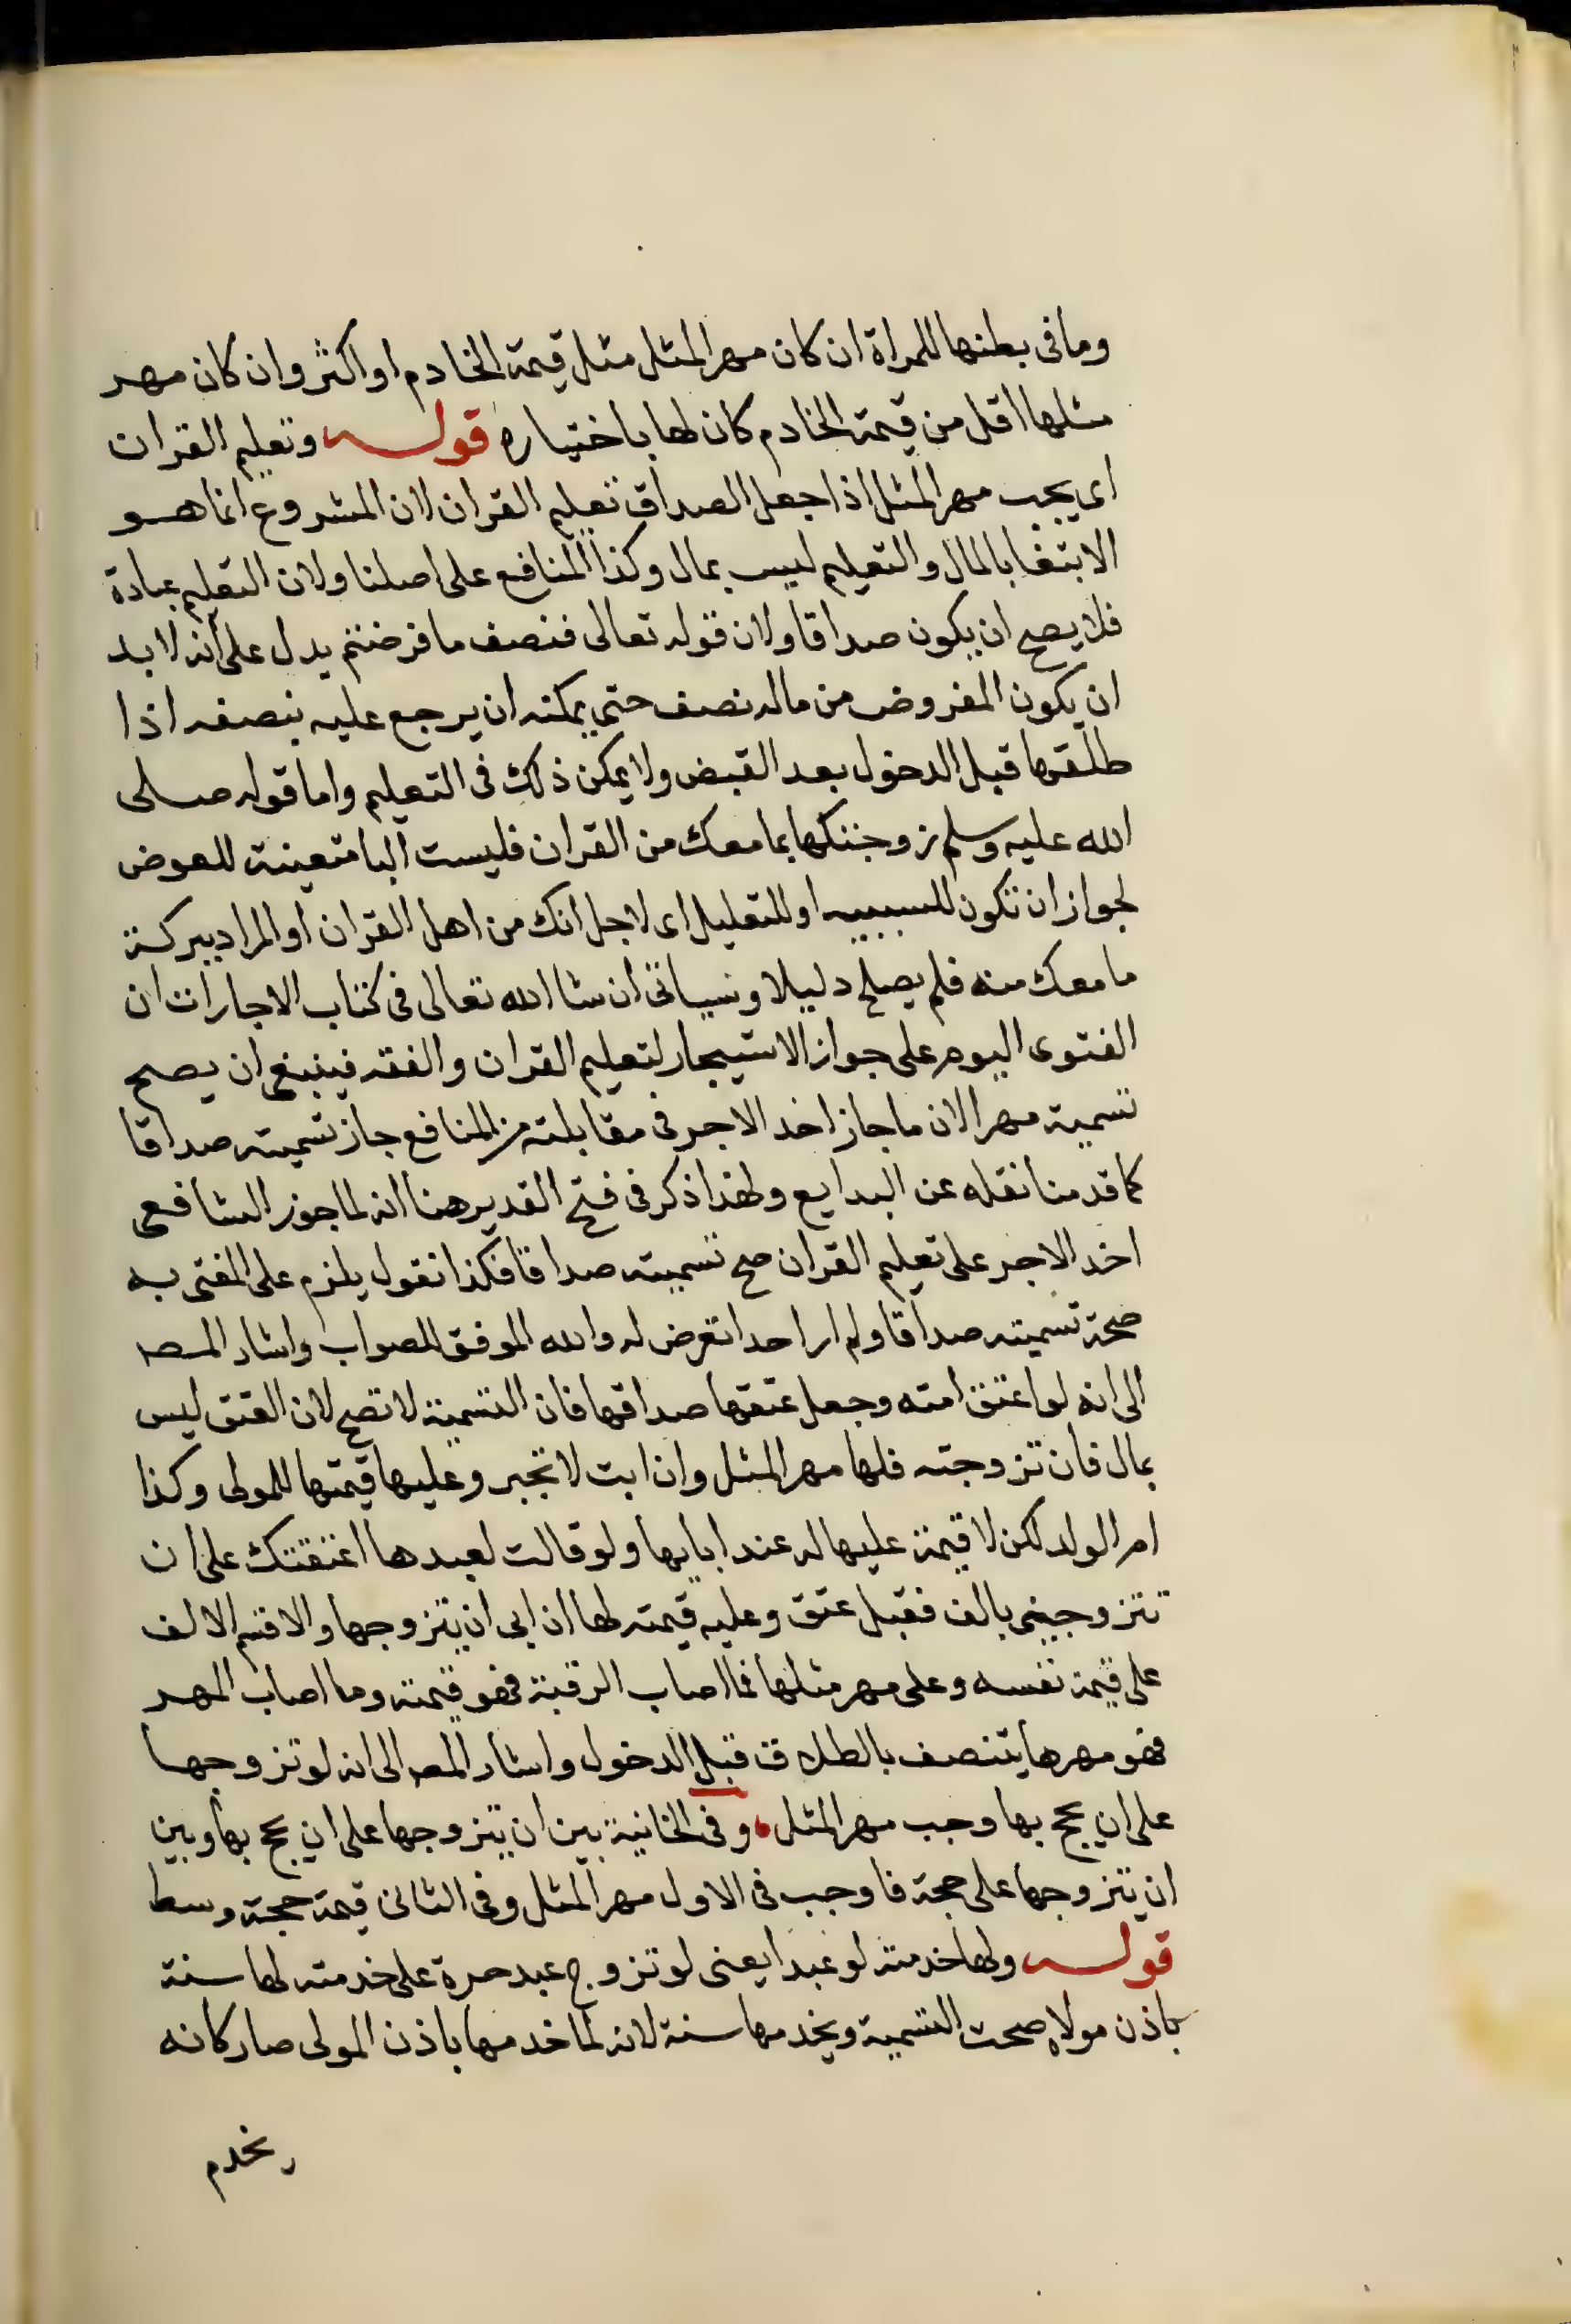 وما فى بطنها للمراة ان كان مهر المثل مثل قيمة الخادم او اكثر وان كان مهر
مثلها اقل من قيمة الخادم كان لها باختياره قوله وتعليم القران
اى يجب مهر المثل اذا جعل الصداق تعليم القران لان المشروع انما هو
الابتغا بالمال والتعليم ليس بمال وكذا المنافع على اصلنا ولان التعليم عبادة
فلا يصح ان يكون صداقا ولان قوله تعالى فنصف ما فرضتم يدل على انه لا بد
ان يكون المفروض من ماله نصف حتى يمكنه ان يرجع عليه بنصفه اذا
طلقها قبل الدخول بعد القبض ولا يمكن ذلك فى التعليم واما قوله صلى
الله عليه وسلم زوجتكها بما معك من القران فليست البا متعينة للعوض
لجواز ان تكون للسببيه او للتعليل اى لاجل انك من اهل القران او المراد ببركة
ما معك منه فلم يصلح دليلا وسياتى ان شا الله تعالى فى كتاب الاجارات ان
الفتوى اليوم على جواز الاستيجار لتعليم القران والفقه فينبغى ان يصح
تسميته مهرا لان ما جاز اخذ الاجر فى مقابلته من المنافع جاز تسميته صداقا
كما قدمنا نقله عن البدايع ولهذا ذكر فى فتح القدير هنا انه لما جوز الشافعى
اخذ الاجر على تعليم القران صح تسميته صداقا فكذا نقول يلزم على المفتى به
صحة تسميته صداقا ولم ار احدا تعرض له والله الموفق للصواب واشار المصـ
الى انه لو اعتق امته وجعل عتقها صداقها فان التسمية لا تصح لان العتق ليس
بمال فان تزوجته فلها مهر المثل وان ابت لا تجبر وعليها قيمتها للمولى وكذا
ام الولد لكن لا قيمة عليها له عند ابايها ولو قالت لعبدها اعتقتك على ان
تتزوجينى بالف فقبل عتق وعليه قيمته لها ان ابى ان يتزوجها والا قسم الالف
على قيمة نفسه وعلى مهر مثلها فما اصاب الرقبة فهو قيمته وما اصاب المهر
فهو مهرها يتنصف بالطلاق قبل الدخول واشار المصـ الى انه لو تزوجها
على ان يحج بها وجب مهر المثل وفى الخانية بين ان يتزوجها على ان يحج بها وبين
ان يتزوجها على حجة فاوجب فى الاول مهر المثل وفى الثانى قيمة حجة وسط
قوله ولها خدمته لو عبدا يعنى لو تزوج عبد حرة على خدمته لها سنة
باذن مولاه صحت التسمية ويخدمها سنة لانه لما خدمها باذن المولى صار كانه
يخدم